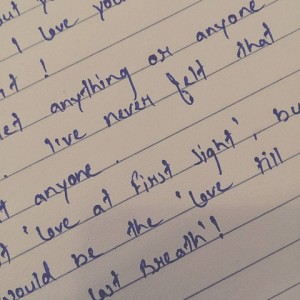 but
I love you
t!
let anything or anyone
. I've never felt that
t anyone.
t 'Love at first sight', bu
would be the 'love till
last Breath'!